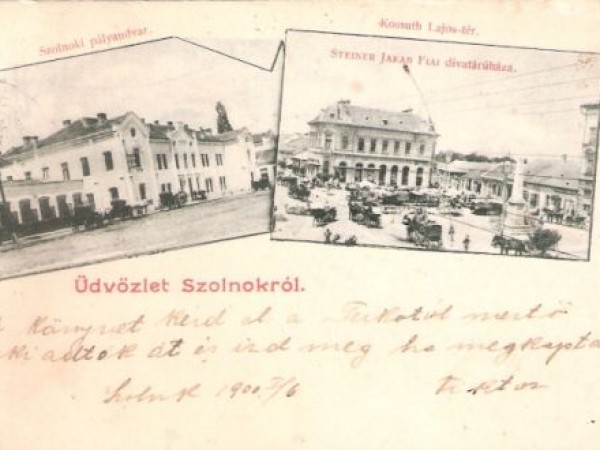 Szolnoki pályaudvar.
Kossuth Lajos-tér.
STEINER JAKAB FIAI divatáruháza.
Üdvözlet Szolnokról.
könyvet kérd el a mert ő
át és ird meg ha megkapta
Szolnok 1900